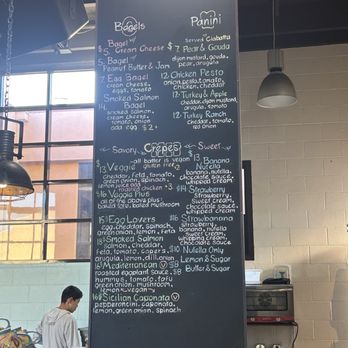 Bagels
Bagel w/
$5 Cream Cheese
5- Bagel
Peanut Butter & Jam
7 Egg Bagel
cream cheese,
egg, tomato
Smoked Salmon
14 Bagel
cream cheese,
tomato, onion
add egg $2+
Panini
Served w/ Ciabatta
$7 Pear & Gouda
dijon mustard, gouda,
pear, arugula
12- Chicken Pesto
onion, pesto, tomato,
chicken, cheddar
12- Turkey & Apple
cheddar, dijon mustard,
arugula, tomato
12- Turkey Ranch
cheddar, tomato,
red onion
Savory Crêpes Sweet
all batter is vegan
gluten free
$13 Veggie
cheddar, feta, tomato,
green onion, spinach,
lemon juice
marinated chicken +3
$16 Veggie Plus
all of the above plus:
baked tofu, baked mushroom
16 Egg Lovers
egg, cheddar, spinach,
green onion, lemon, feta
18 Smoked Salmon
salmon, cheddar,
feta, tomato, capers,
arugula, lemon, dill, onion
16 Mediterranean V
roasted eggplant sauce,
hummus, tomato, tofu
green onion, mushroom,
lemon - vegan
16 Sicilian Caponata V
pepperoncini, caponata,
lemon, green onion, spinach
$13 Banana
Nutella
banana, nutella,
chocolate sauce,
whipped cream
$14 Strawberry
Strawberry,
sweet cream,
chocolate sauce,
whipped cream
$16 Strawbanana
strawberry,
banana, nutella
sweet cream,
whipping cream,
chocolate sauce
$10 Nutella Only
$8 Lemon & Sugar
$8 Butter & Sugar